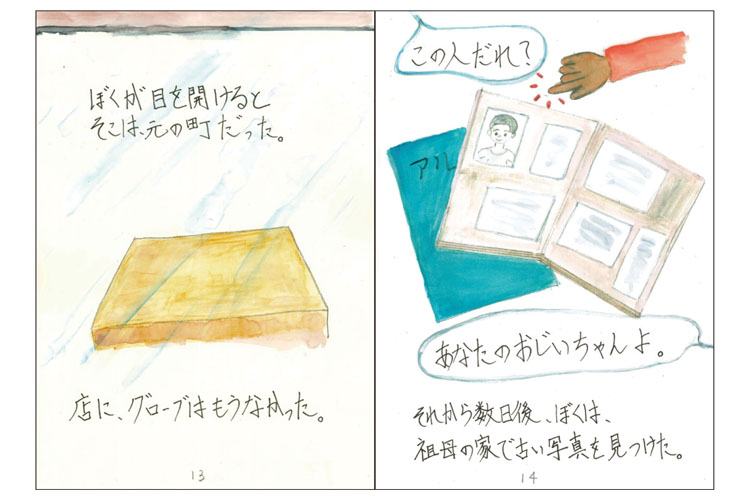 ぼくが目を開けると
そこは、元の町だった。
店に、グローブはもうなかった。
13
この人だれ?
アル
あなたのおじいちゃんよ。
それから数日後、ぼくは、
祖母の家で古い写真を見つけた。
14